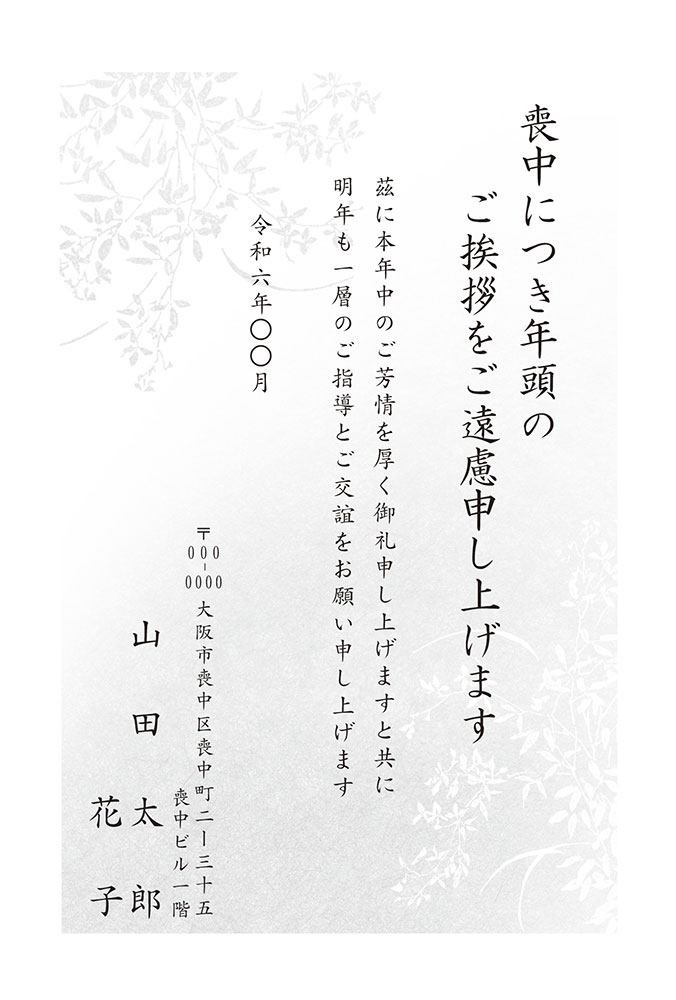 喪中につき年頭の
ご挨拶をご遠慮申し上げます
茲に本年中のご芳情を厚く御礼申し上げますと共に
明年も一層のご指導とご交誼をお願い申し上げます
令和六年〇〇月
〒000-0000
大阪市喪中区喪中町二ー三十五
喪中ビル一階
山田太郎
花子